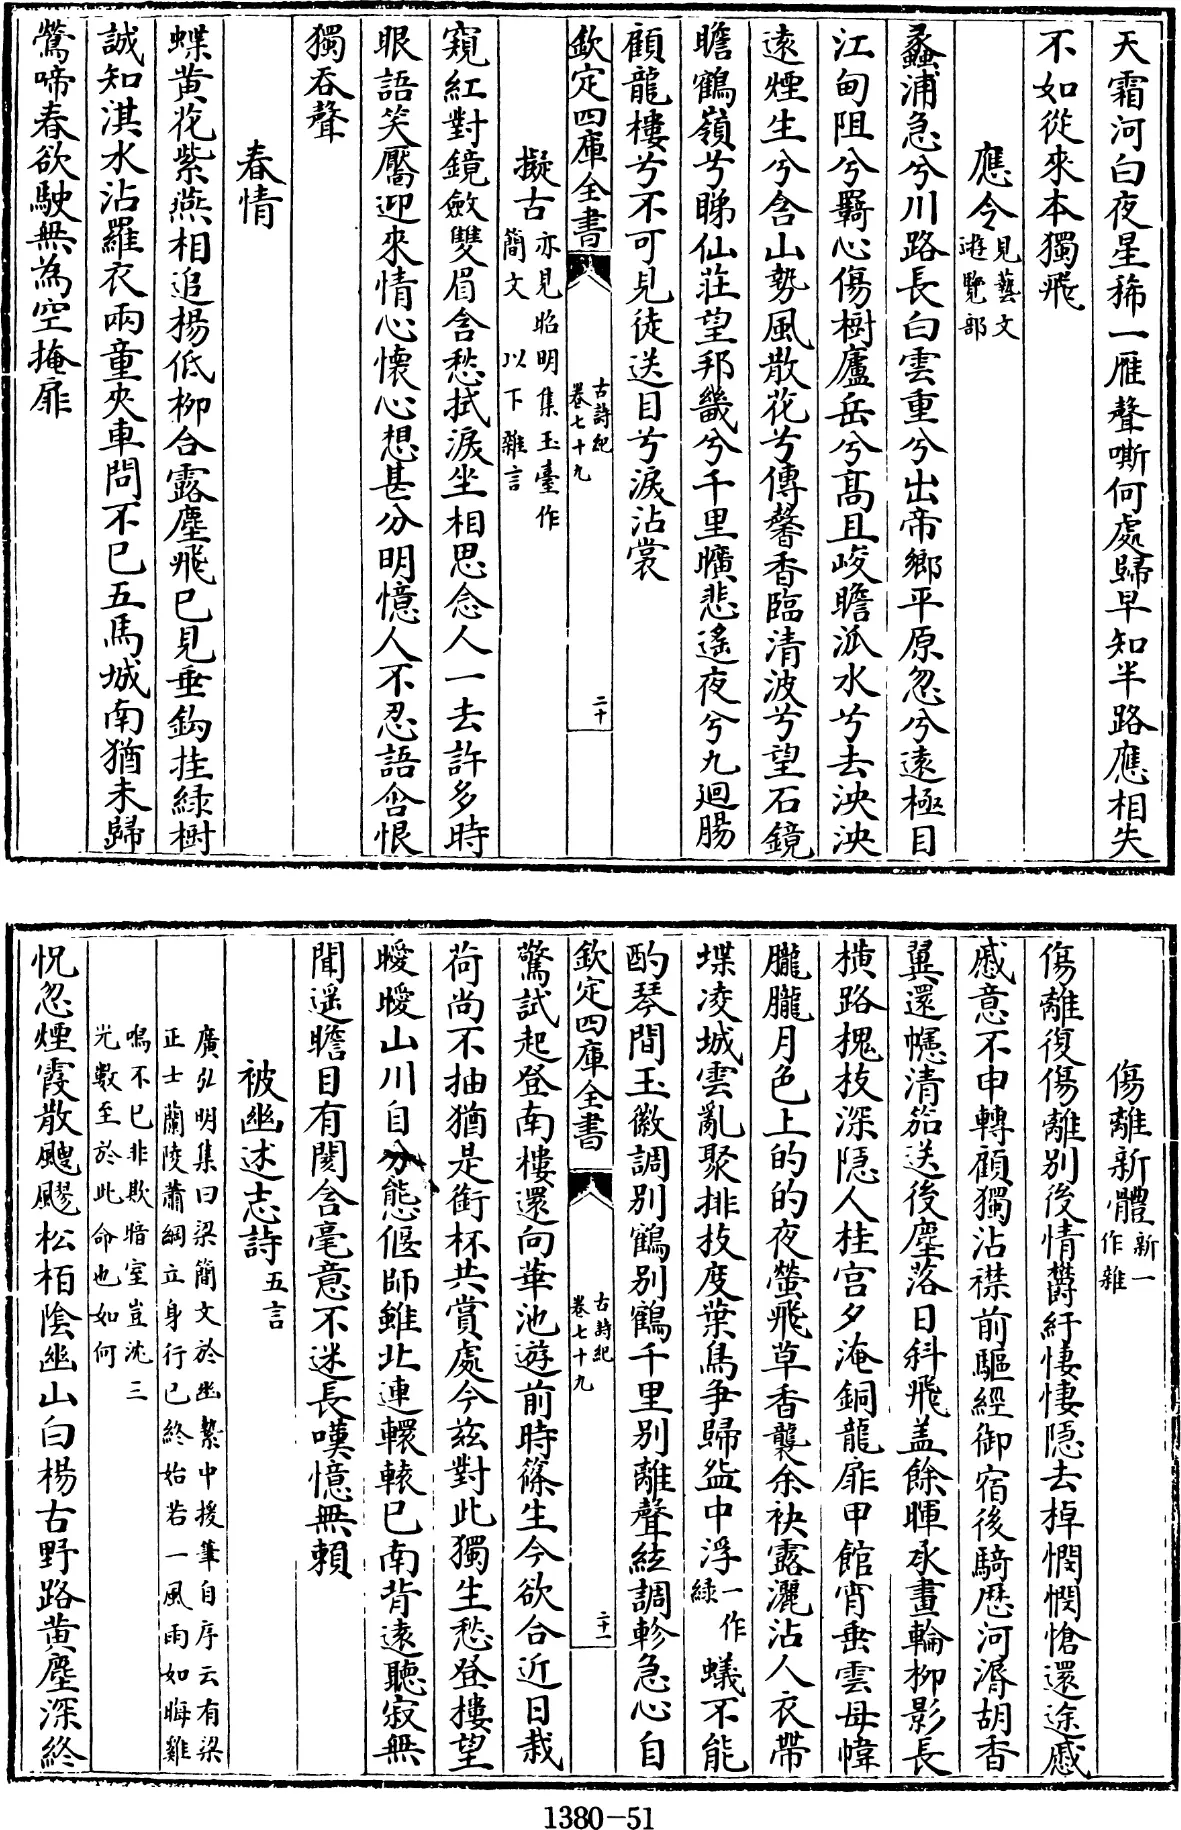 天霜河白夜星稀一雁聲嘶何處歸早知半路應相失
不如從來本獨飛
應令見藝文遊覽部
蠡浦急兮川路長白雲重兮出帝鄉平原忽兮遠極目
江甸阻兮羇心傷樹廬岳兮髙且峻瞻泒水兮去泱泱
遠煙生兮含山勢風散花兮傳馨香臨清波兮望石鏡
瞻鶴嶺兮睇仙莊望邦畿兮千里曠悲遙夜兮九廻腸
顧龍樓兮不可見徒送目兮淚沾裳
欽定四庫全書
古詩紀
卷七十九
二十
擬古亦見昭明集玉臺作簡文 以下雜言
窺紅對鏡斂雙眉含愁拭淚坐相思念人一去許多時
眼語笑靨迎來情心懷心想甚分明憶人不忍語含恨
獨吞聲
春情
蝶黃花紫燕相追楊低柳合露塵飛已見垂鈎挂綠樹
誠知淇水沾羅衣兩童夾車問不已五馬城南猶未歸
鶯啼春欲駛無為空掩扉
傷離新體新一作雜
傷離復傷離別後情鬱紆悽悽隱去棹憫憫愴還途慼
慼意不申轉顧獨沾襟前驅經御宿後騎歴河漘胡香
翼還幰清笳送後塵落日斜飛盖餘暉承畫輪柳影長
橫路槐枝深隱人桂宫夕淹銅龍扉甲館宵垂雲母幃
朧朧月色上的的夜螢飛草香襲余袂露灑沾人衣帶
堞凌城雲亂聚排枝度葉鳥爭歸盌中浮一作綠蟻不能
酌琴間玉徽調別鶴別鶴千里別離聲絃調軫急心自
欽定四庫全書
古詩紀
卷七十九
二十一
驚試起登南樓還向華池遊前時篠生今欲合近日栽
荷尚不抽猶是銜杯共賞處今兹對此獨生愁登樓望
曖曖山川自分態偃師雖北連轘轅已南背遠聽寂無
聞遥瞻目有閡含毫意不迷長嘆憶無賴
被幽述志詩五言
廣弘明集曰梁簡文於幽縶中援筆自序云有梁
正士蘭陵蕭綱立身行已終始若一風雨如晦雞
鳴不已非欺暗室豈沈三
光數至於此命也如何
怳忽煙霞散颼飅松柏陰幽山白楊古野路黄塵深終
1380-51